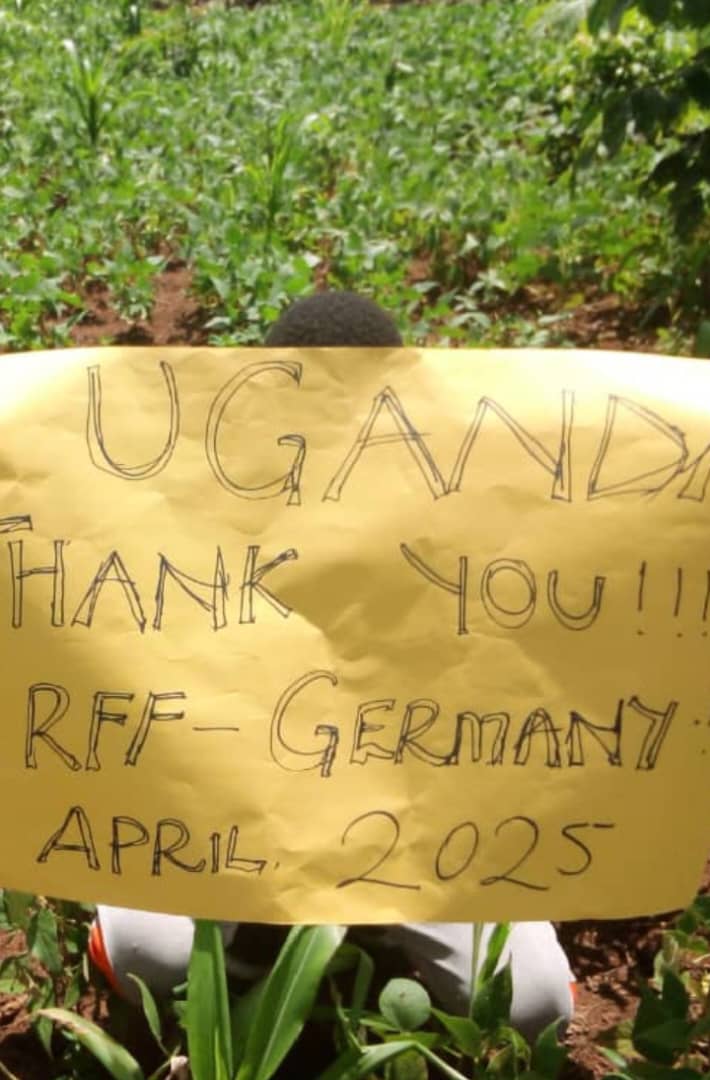 UGANDA
THANK YOU!!!
RFF - GERMANY
APRIL. 2025